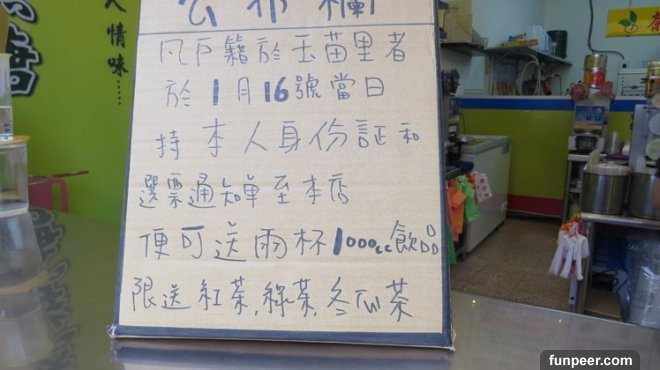 公布欄
凡戶籍於玉苗里者
於1月16號當日
持本人身份証和
選票通知單至本店
便可送兩杯1000cc飲品
限送紅茶,綠茶,冬瓜茶
人情味......
茶
funpeer.com